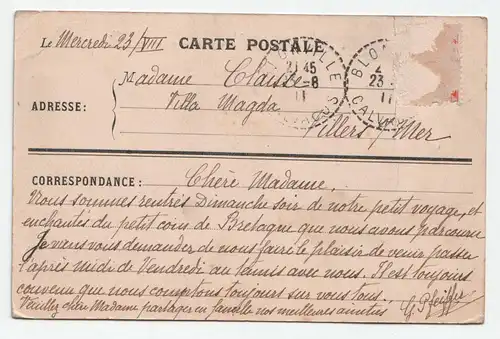 Le Mercredi 23/VIII CARTE POSTALE
Madame Claisse
ADRESSE: Villa Magda
Villers s/Mer
BLON
21 45
23 -8
11
CALVADOS
CORRESPONDANCE: Chère Madame,
Nous sommes rentrés Dimanche soir de notre petit voyage, et
enchantés du petit coin de Bretagne que nous avons parcouru
Je vais vous demander de nous faire le plaisir de venir passer
l'après midi de Vendredi au tennis avec nous. Il est toujours
convenu que nous comptons toujours sur vous tous.
Veuillez chère Madame partager en famille nos meilleures amitiés G Pfeiffer